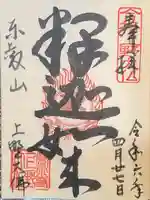 奉拝
令和六年
四月廿七日
釋迦如来
東叡山
上野大佛